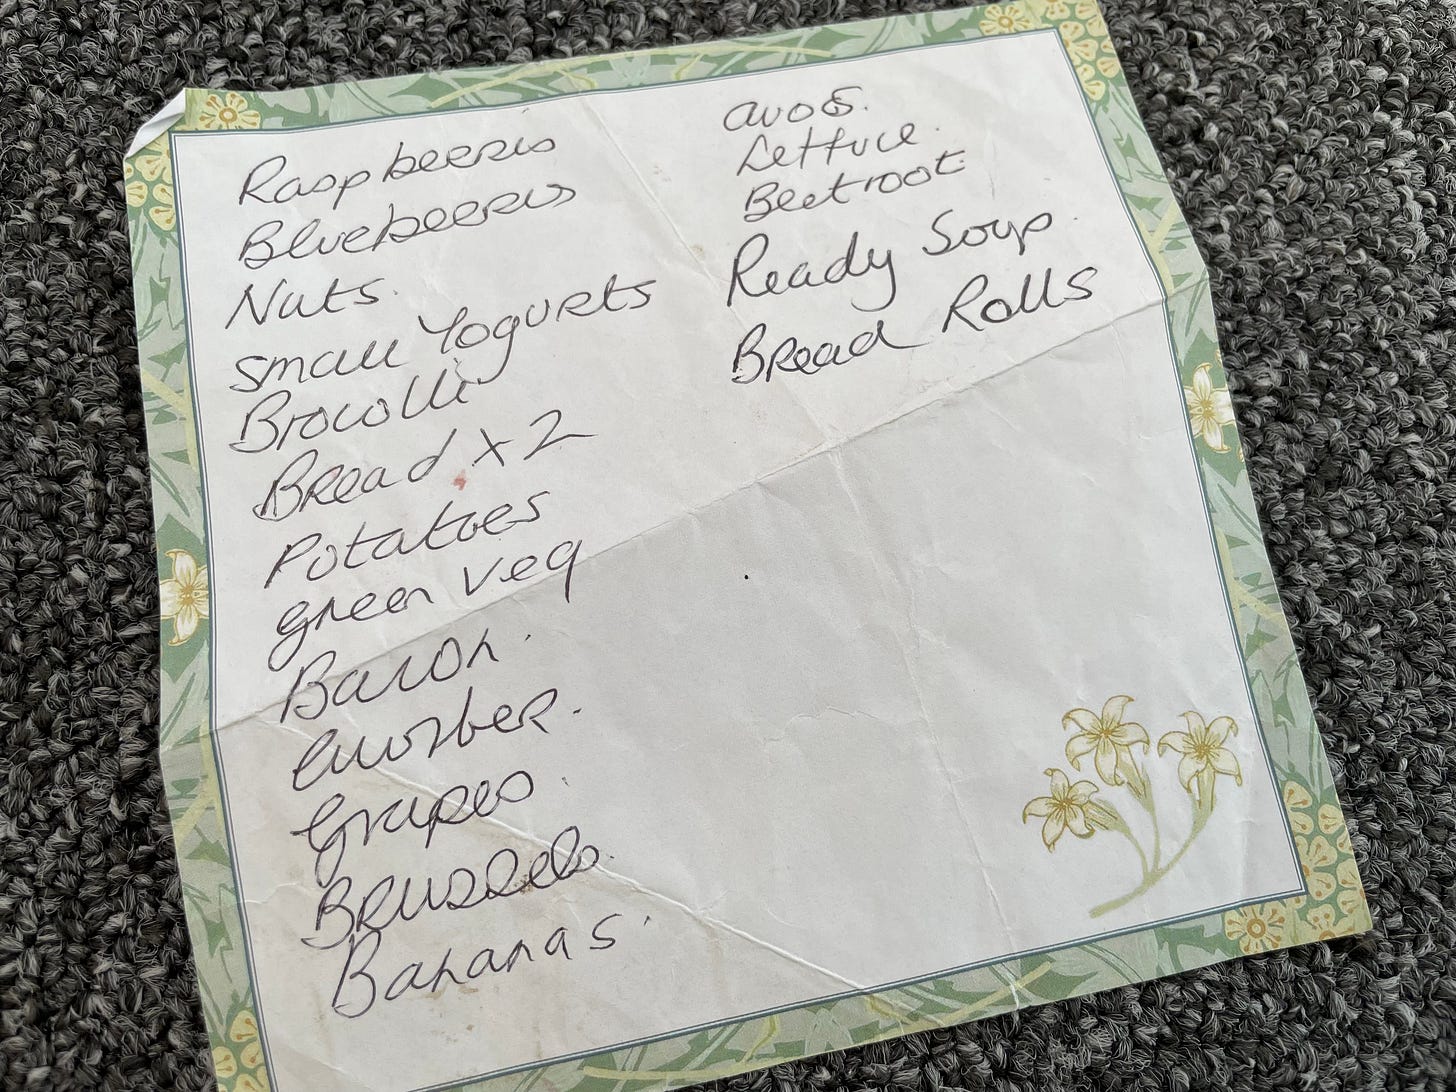 Raspberries
Blueberries
Nuts.
small Yogurts
Brocolli
Bread x 2
Potatoes
green veg
Bacon.
Cucumber.
Grapes.
Brussels.
Bananas.
avos.
Lettuce.
Beetroot.
Ready Soup.
Bread Rolls